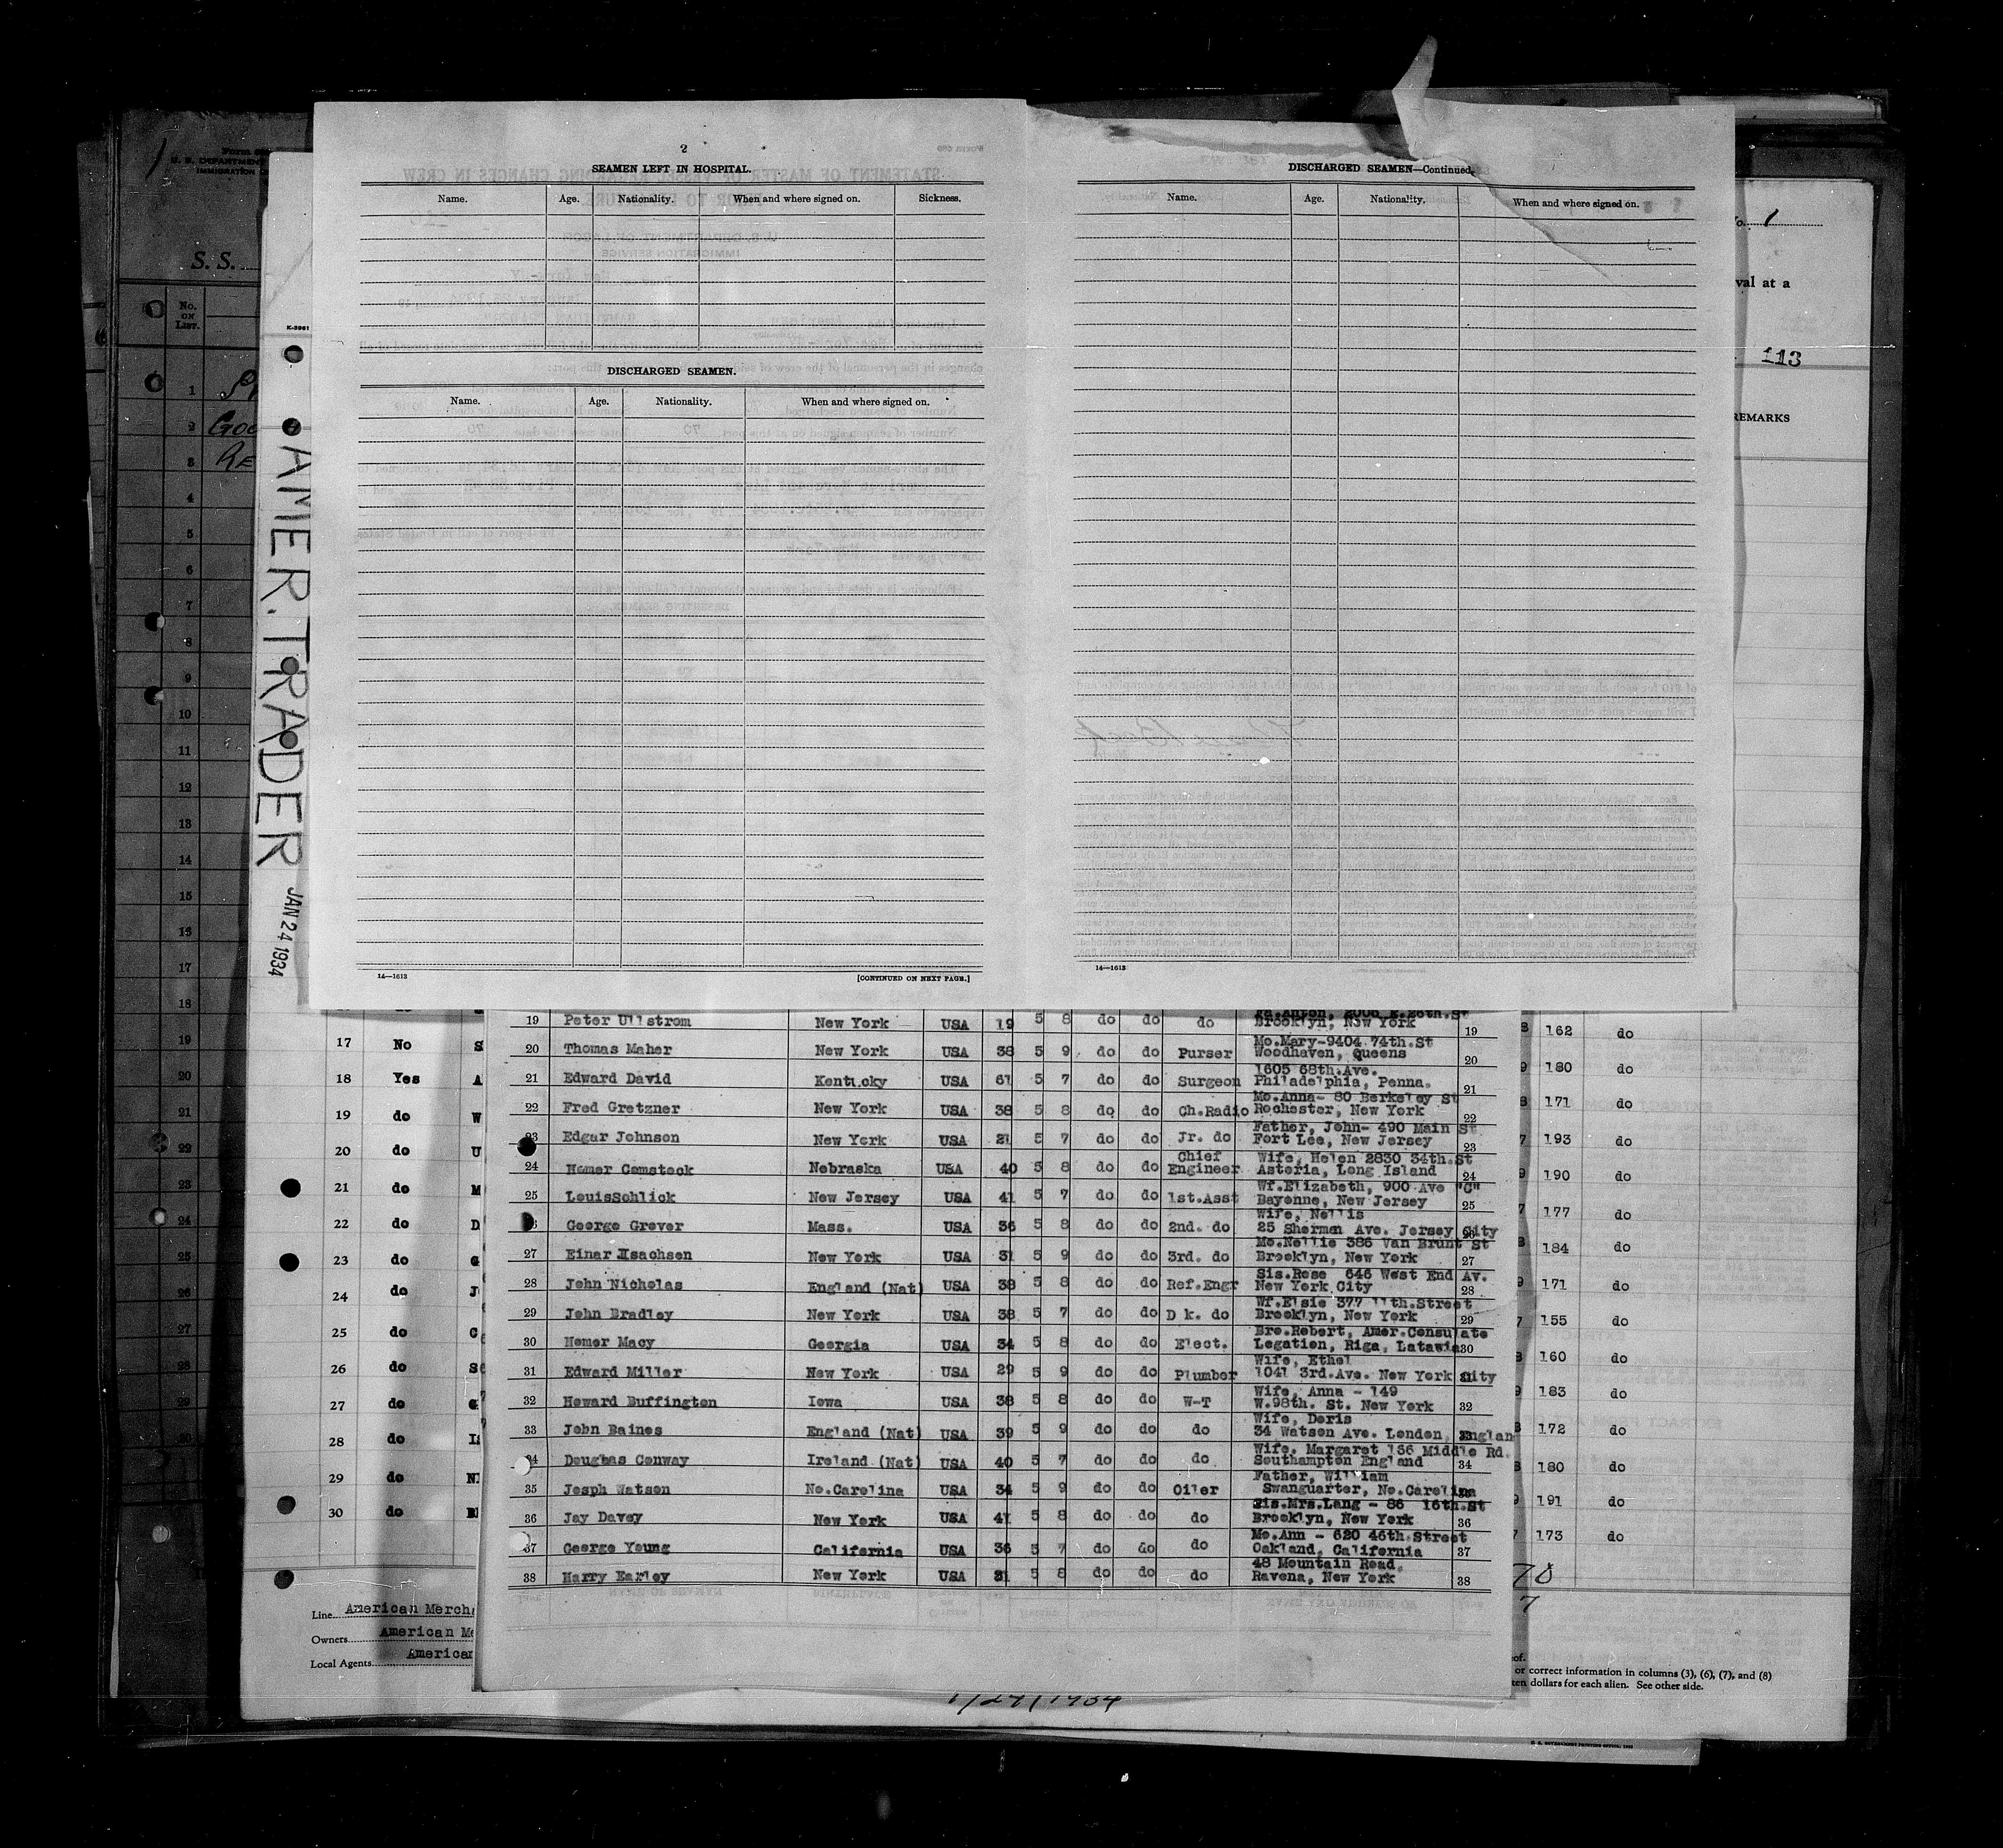 2
SEAMEN LEFT IN HOSPITAL.
Name. Age. Nationality. When and where signed on. Sickness.
DISCHARGED SEAMEN.
Name. Age. Nationality. When and where signed on.
14—1613 [CONTINUED ON NEXT PAGE.]
DISCHARGED SEAMEN—Continued.
Name. Age. Nationality. When and where signed on.
14—1613
S. S.
No. ON LIST.
1
2
3
4
5
6
7
8
9
10
11
12
13
14
15
17
18
19
20
21
22
23
24
25
26
27
28
29
K-3961
AMER. TRADER
JAN 24 1934
1
val at a
113
REMARKS
17 No S
18 Yes A
19 do W
20 do U
21 do M
22 do D
23 do G
24 do J
25 do C
26 do S
27 do G
28 do
29 do N
30 do
Line American Merch
Owners American Me
Local Agents American
19 Peter Ullstrom New York USA 19 5 8 do do do Brooklyn, New York 19
20 Thomas Maher New York USA 38 5 9 do do Purser Mo.Mary-9404 74th.St
Woodhaven, Queens 20
21 Edward David Kentucky USA 61 5 7 do do Surgeon 1605 68th.Ave.
Philadelphia, Penna. 21
22 Fred Gretzner New York USA 38 5 8 do do Ch.Radio Mo.Anna- 80 Berkeley St
Rochester, New York 22
23 Edgar Johnson New York USA 21 5 7 do do Jr. do Father, John- 490 Main St
Fort Lee, New Jersey 23
24 Homer Comstock Nebraska USA 40 5 8 do do Chief Engineer Wife, Helen 2830 34th.St
Astoria, Long Island 24
25 LouisSchlick New Jersey USA 41 5 7 do do 1st.Asst Wf.Elizabeth, 900 Ave "C"
Bayonne, New Jersey 25
George Grover Mass. USA 36 5 8 do do 2nd. do Wife, Nellis
25 Sherman Ave. Jersey City
27 Einar Isachsen New York USA 31 5 9 do do 3rd. do Mo.Nellie 386 Van Brunt St
Brooklyn, New York 27
28 John Nicholas England (Nat) USA 38 5 8 do do Ref.Engr Sis.Rose 646 West End Av.
New York City 28
29 John Bradley New York USA 38 5 7 do do D k. do Wf.Elsie 377 11th.Street
Brooklyn, New York 29
30 Homer Macy Georgia USA 34 5 8 do do Elect. Bro.Robert, Amer.Consulate
Legation, Riga, Latawia 30
31 Edward Miller New York USA 29 5 9 do do Plumber Wife, Ethel
1041 3rd.Ave. New York City
32 Howard Buffington Iowa USA 38 5 8 do do W-T Wife, Anna - 149
W.98th. St. New York 32
33 John Baines England (Nat) USA 39 5 9 do do do Wife, Doris
34 Watson Ave. London, Englan
34 Douglas Conway Ireland (Nat) USA 40 5 7 do do do Wife. Margaret 166 Middle Rd.
Southampton England 34
35 Jesph Watson No.Carolina USA 34 5 9 do do Oiler Father, William
Swanquarter, No.Carolina
36 Jay Davey New York USA 41 5 8 do do do Sis.Mrs.Lang - 86 16th.St
Brooklyn, New York 36
37 George Young California USA 36 5 7 do do do Mo.Ann - 620 46th.Street
Oakland, California 37
38 Harry Earley New York USA 31 5 8 do do do 48 Mountain Road,
Ravena, New York 38
8 162 do
9 180 do
8 171 do
7 193 do
9 190 do
7 177 do
8 184 do
9 171 do
7 155 do
8 160 do
9 183 do
8 172 do
8 180 do
9 191 do
7 173 do
70
7
or correct information in columns (3), (6), (7), and (8)
ten dollars for each alien. See other side.
1/24/1934